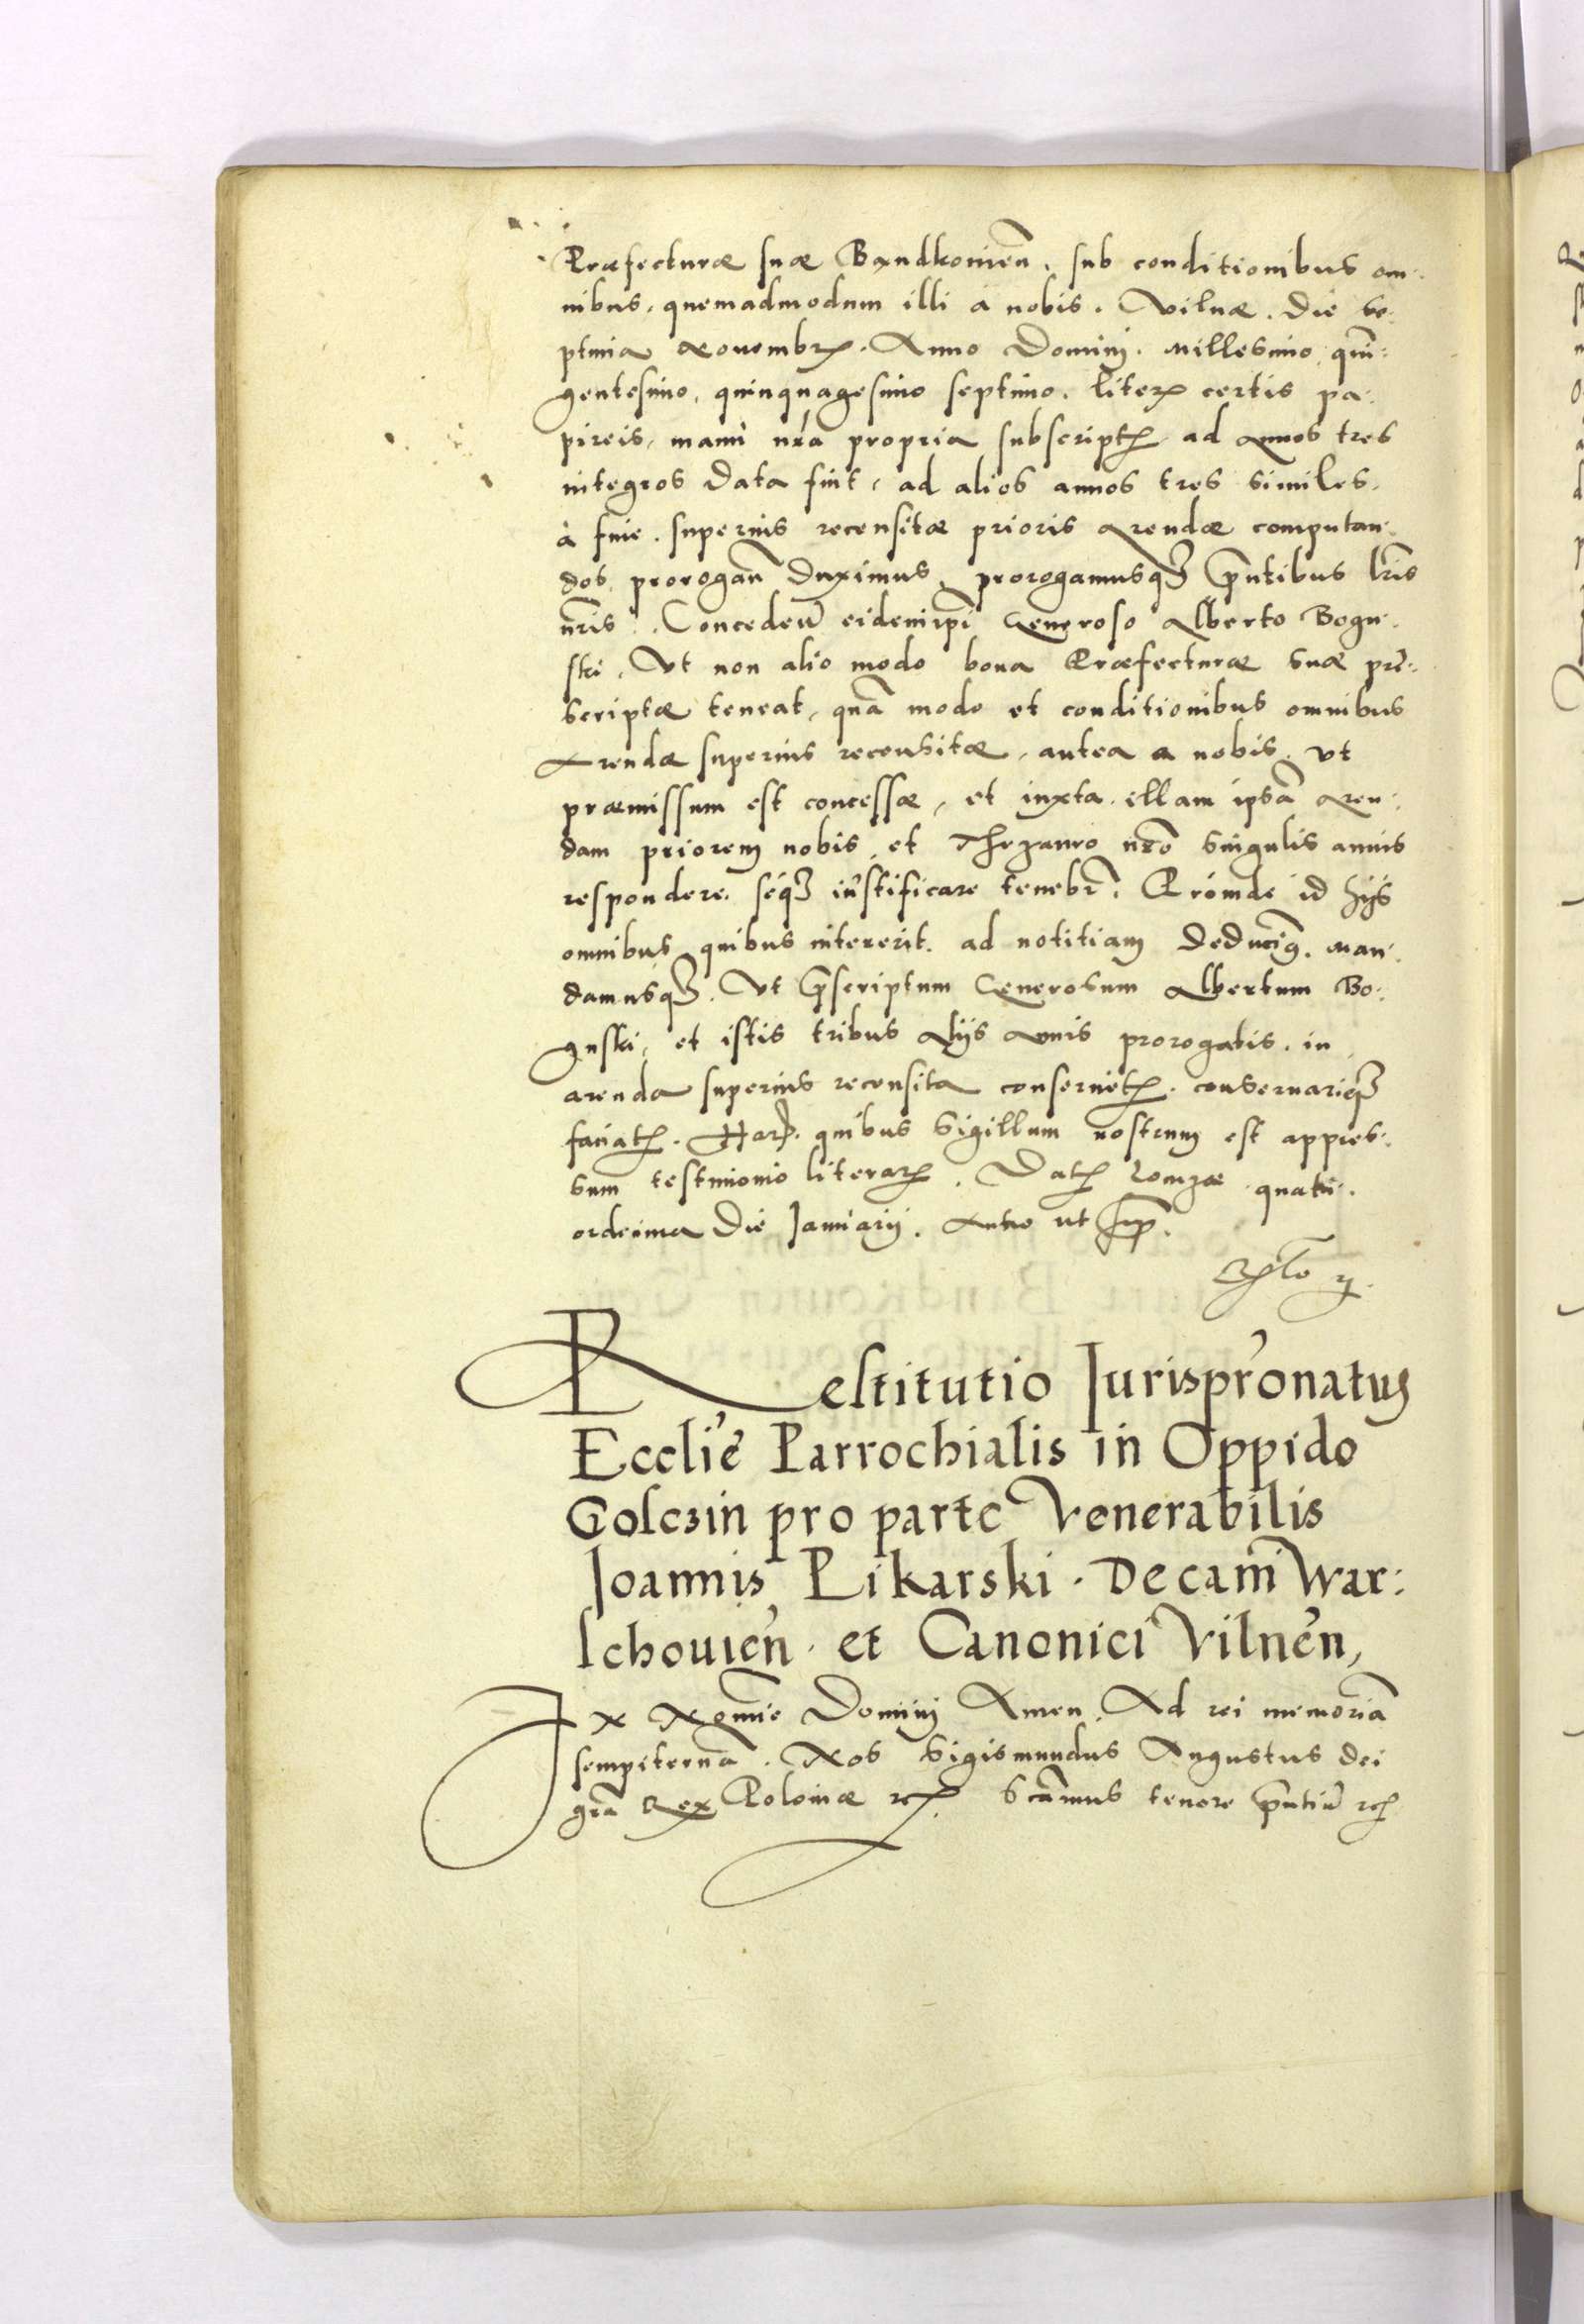 Præfecturæ suæ Bandkouień. sub conditionibus om-
nibus, quemadmodum illi a nobis. Vilnæ. Die se-
ptima Nouembr. Anno Domini. Millesimo quin:
gentesimo, quinquagesimo septimo. liter certis pa-
pireis, manu nra propria subscript ad annos tres
integros data sint, ad alios annos tres similes,
à fine superius recensitæ prioris arendæ computan-
dos, prorogan duximus, prorogamusq; pntibus lris
nris. Conceden eidemipi Generoso Alberto Bogu-
ski. Ut non alio modo bona Præfecturæ suæ præ-
scriptæ teneat, quā modo et conditionibus omnibus
Arendæ superius recensitæ, antea a nobis, ut
præmissum est concessæ, et iuxta illam ipsā Aren-
dam priorem nobis et Thezauro nro singulis annis
respondere. seq; iustificare tenebr. Proinde id hijs
omnibus quibus intererit. ad notitiam Deducim. Man-
damusq;. Ut pscriptum Generosum Albertum Bo-
guski, et istis tribus Alijs Annis prorogatis, in
arenda superius recensita conseruet. conseruariq;
faciat. Har. quibus Sigillum nostrum est appres-
sum testimonio literar. Dat Lomzæ quatu-
ordecima Die Januarij. Anno ut sup.
Restitutio Jurisprōnatus
Ecclie Parrochialis in Oppido
Golczin pro parte Venerabilis
Joannis Pikarski. Decani War:
schouien. et Canonici Vilnen,
In Nomie Domini Amen. Ad rei memoriā
sempiternā. Nos Sigismundus Augustus dei
gra Rex Poloniæ etc. Scāmus tenore pntiū etc